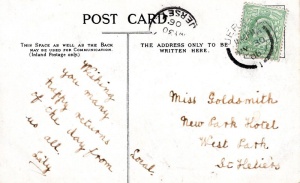 POST CARD
THIS SPACE AS WELL AS THE BACK
MAY BE USED FOR COMMUNICATION.
(Inland Postage only.)
THE ADDRESS ONLY TO BE
WRITTEN HERE.
JERSE
Wishing
you many
happy returns
of the day from
us all.
Lily
Local.
Miss Goldsmith
New Park Hotel
West Park
St Helier's